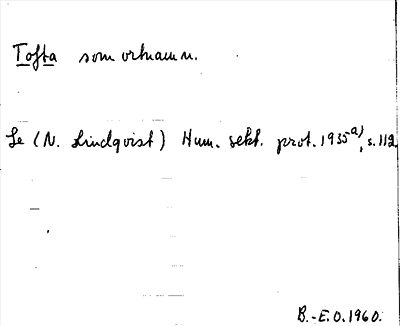 Tofta som ortnamn.
Se (N. Lindqvist) Hum. sekt. prot. 1935 a), s. 112.
B.-E.O. 1960.